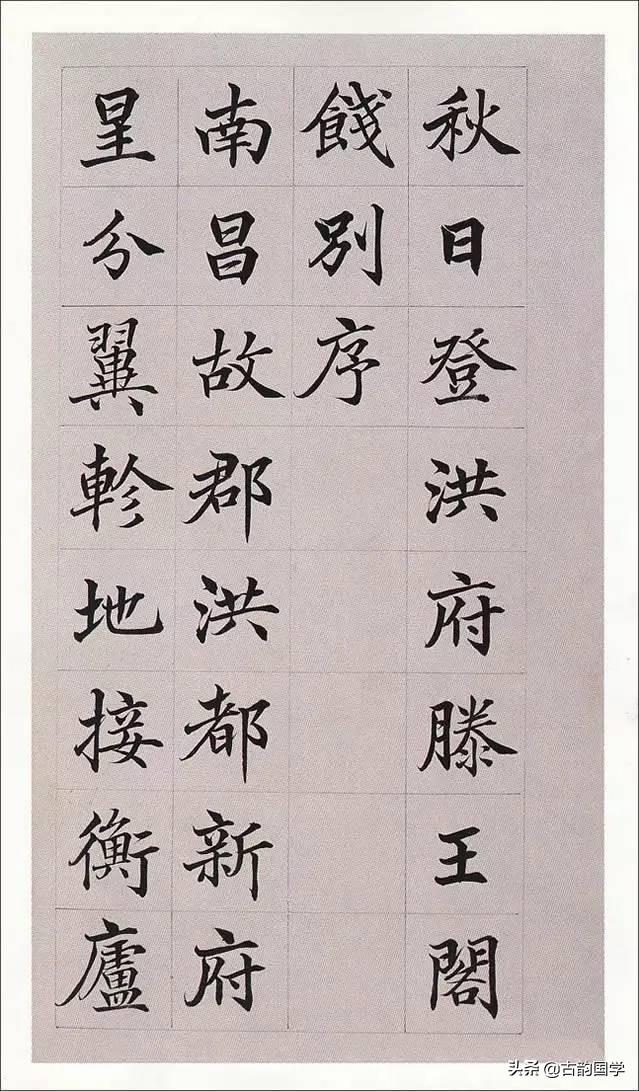 秋日登洪府滕王閣
餞別序
南昌故郡洪都新府
星分翼軫地接衡廬
头条 @古韵国学